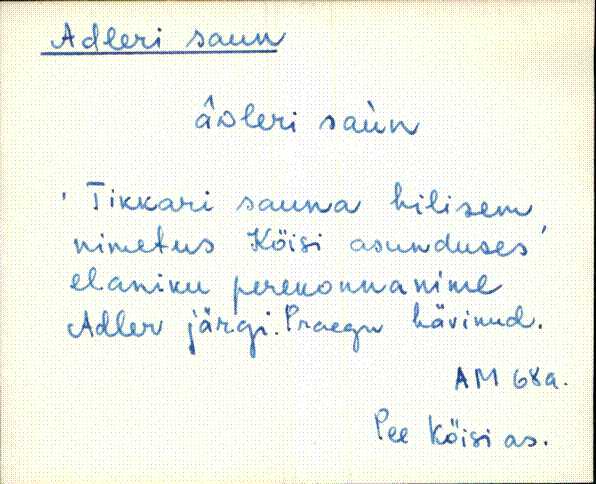 Adleri saun
âdleri saùn
' Tikkari sauna hilisem
nimetus Köisi asunduses '
elaniku perekonnanime
Adler järgi. Praegu hävinud.
AM 68a.
Pee Köisi as.